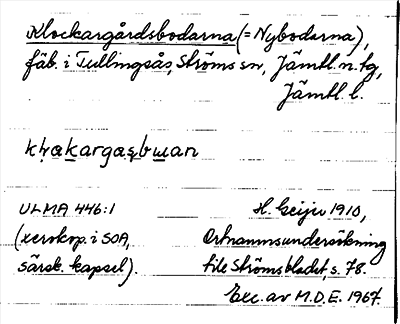 Klockargårdsbodarna (= Nybodarna),
fäb. i Tullingsås, Ströms sn, Jämtl. n. fg,
Jämtl. l.
ULMA 446:1
H. Geijer 1910,
(xerokop. i SOA,
Ortnamnsundersökning
särsk. kapsel).
till Strömsbladet, s. 78.
Exc. av M.D.E. 1967.